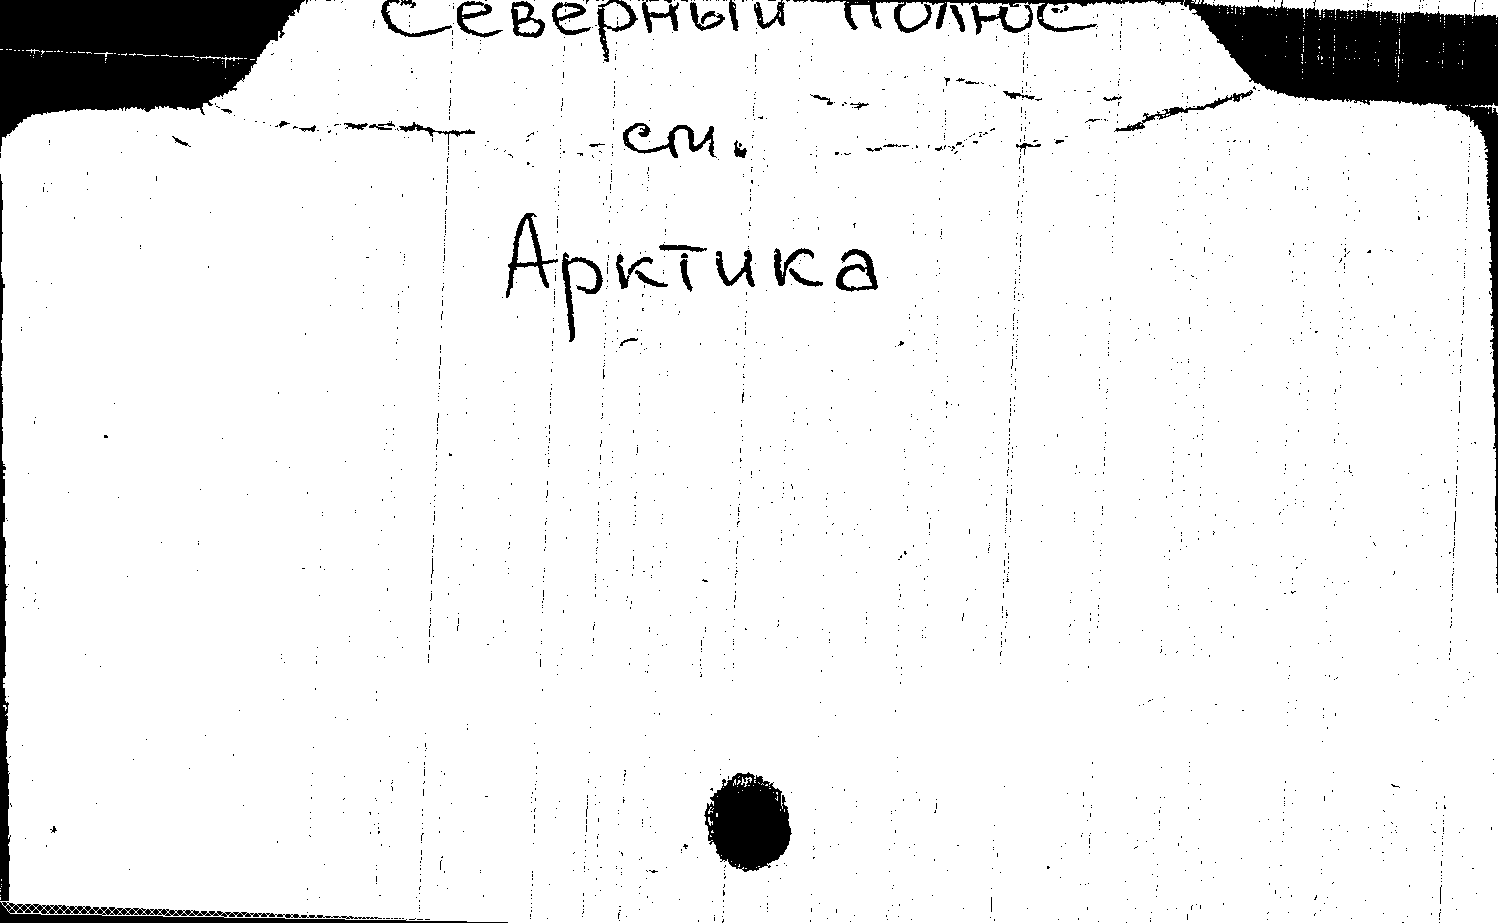 Северный полюс
см.
Арктика